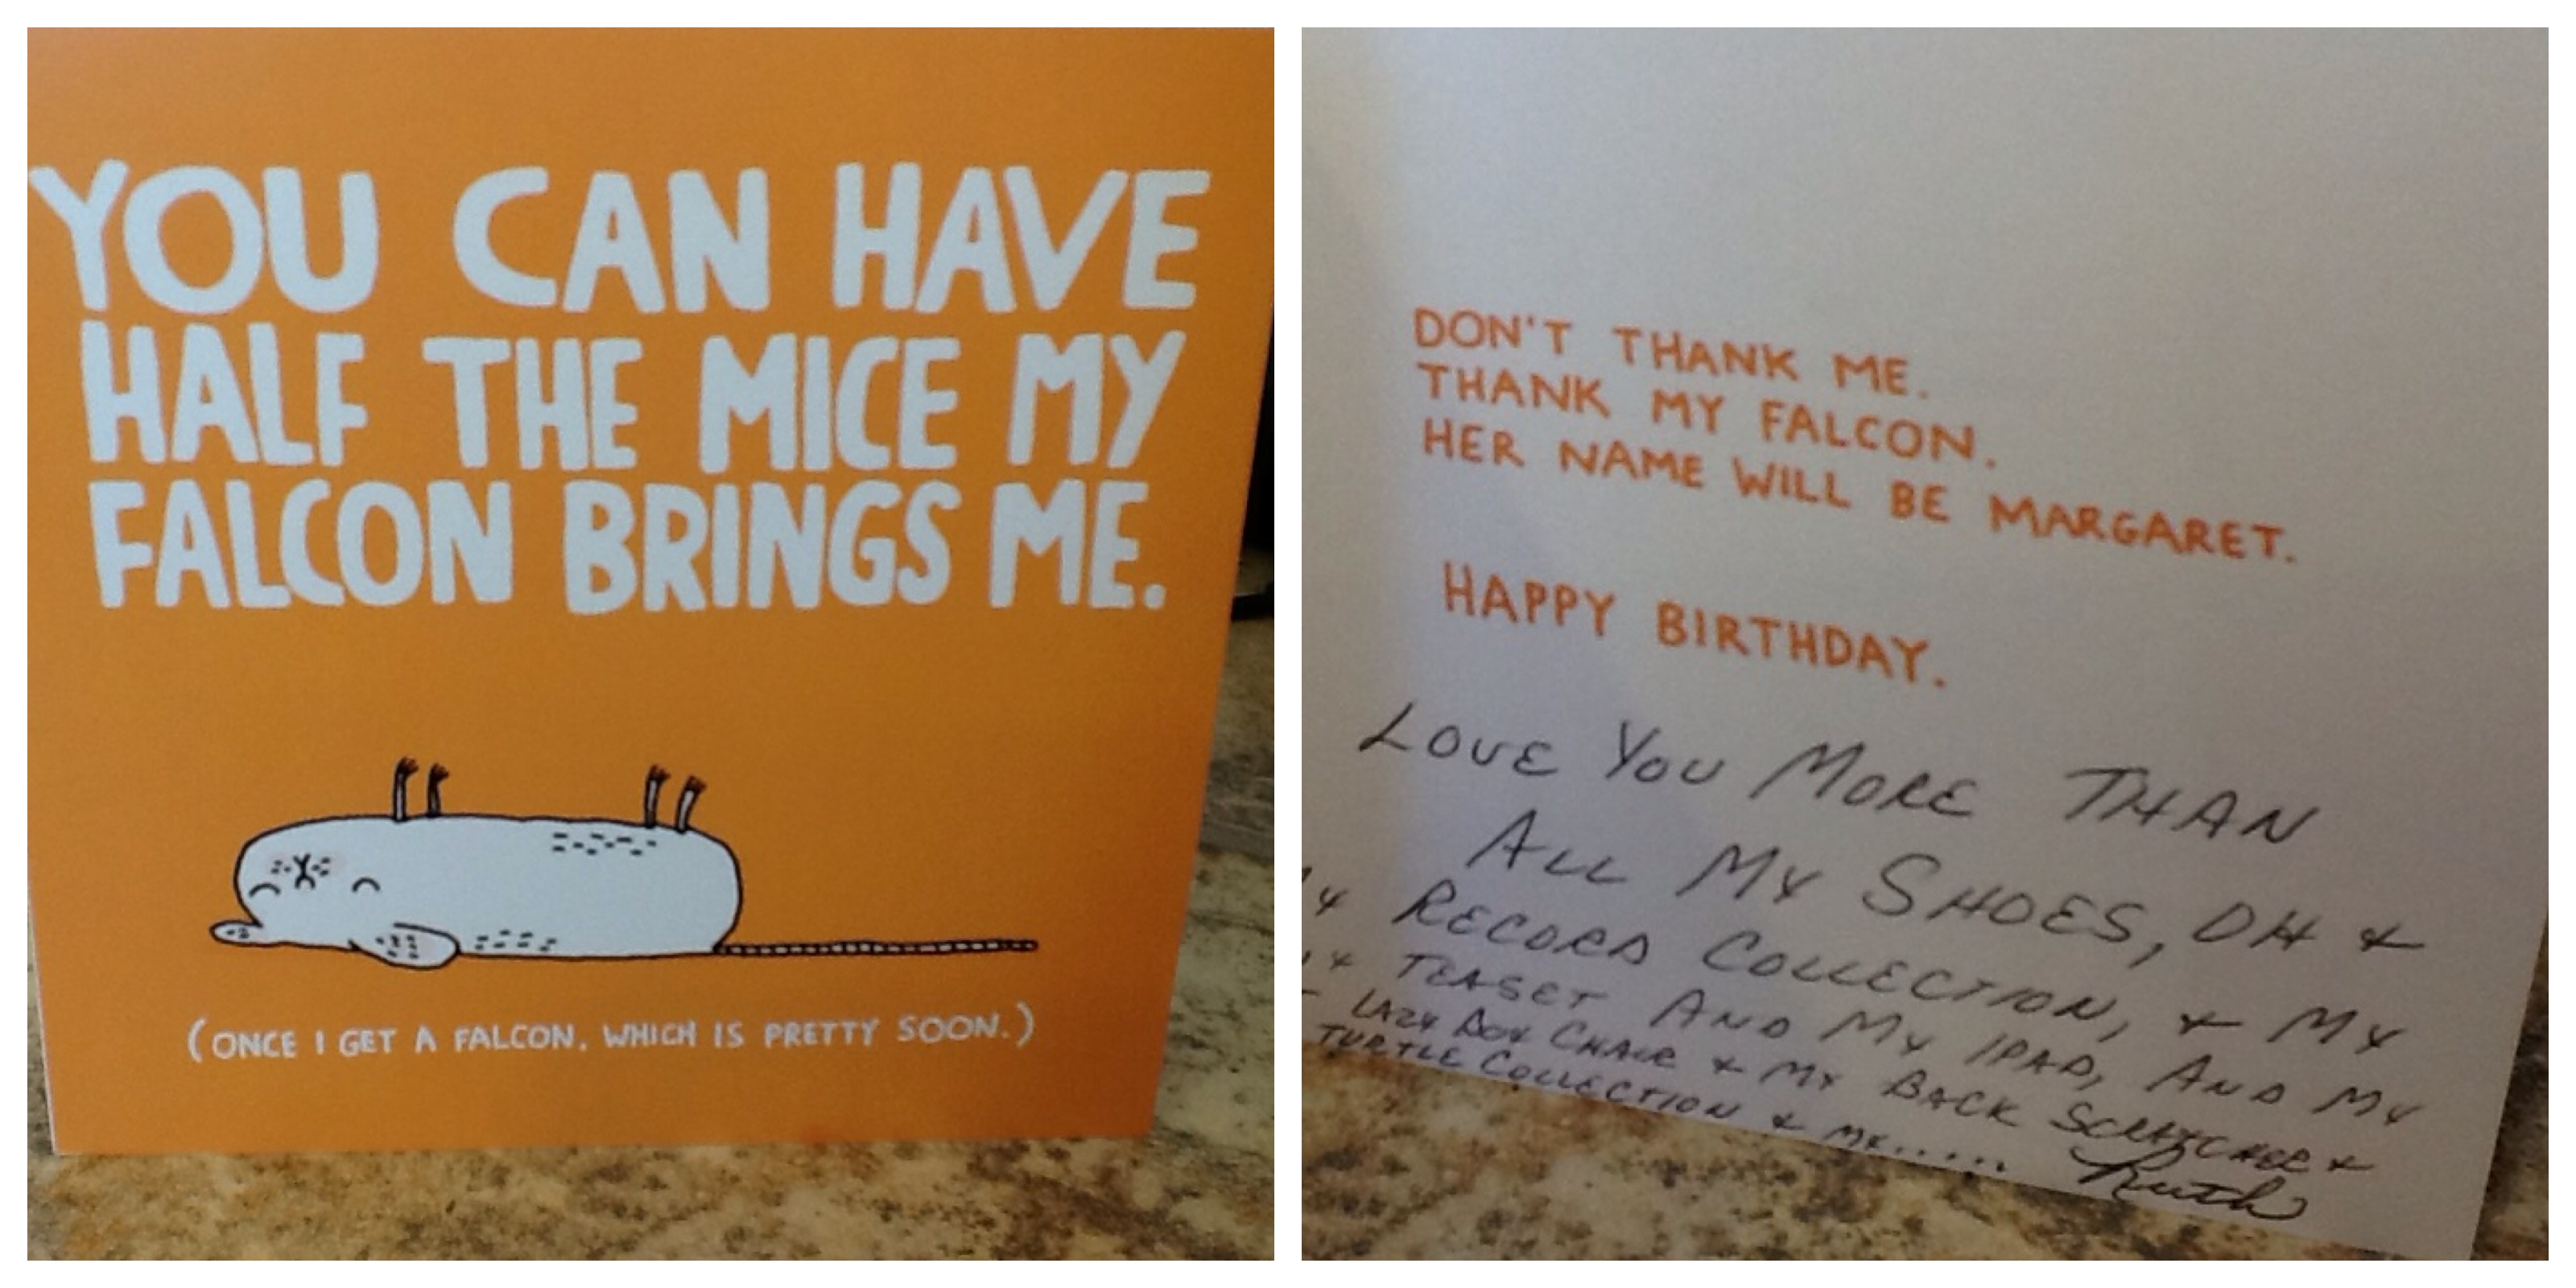 YOU CAN HAVE
HALF THE MICE MY
FALCON BRINGS ME.
(ONCE I GET A FALCON. WHICH IS PRETTY SOON.)
DON'T THANK ME.
THANK MY FALCON.
HER NAME WILL BE MARGARET.
HAPPY BIRTHDAY.
LOVE YOU MORE THAN
ALL MY SHOES, OH &
RECORD COLLECTION, & MY
TEASET AND MY IPAD, AND MY
LAZY BOY CHAIR & MY BACK SCRATCHER &
TURTLE COLLECTION & MY......
Ruth